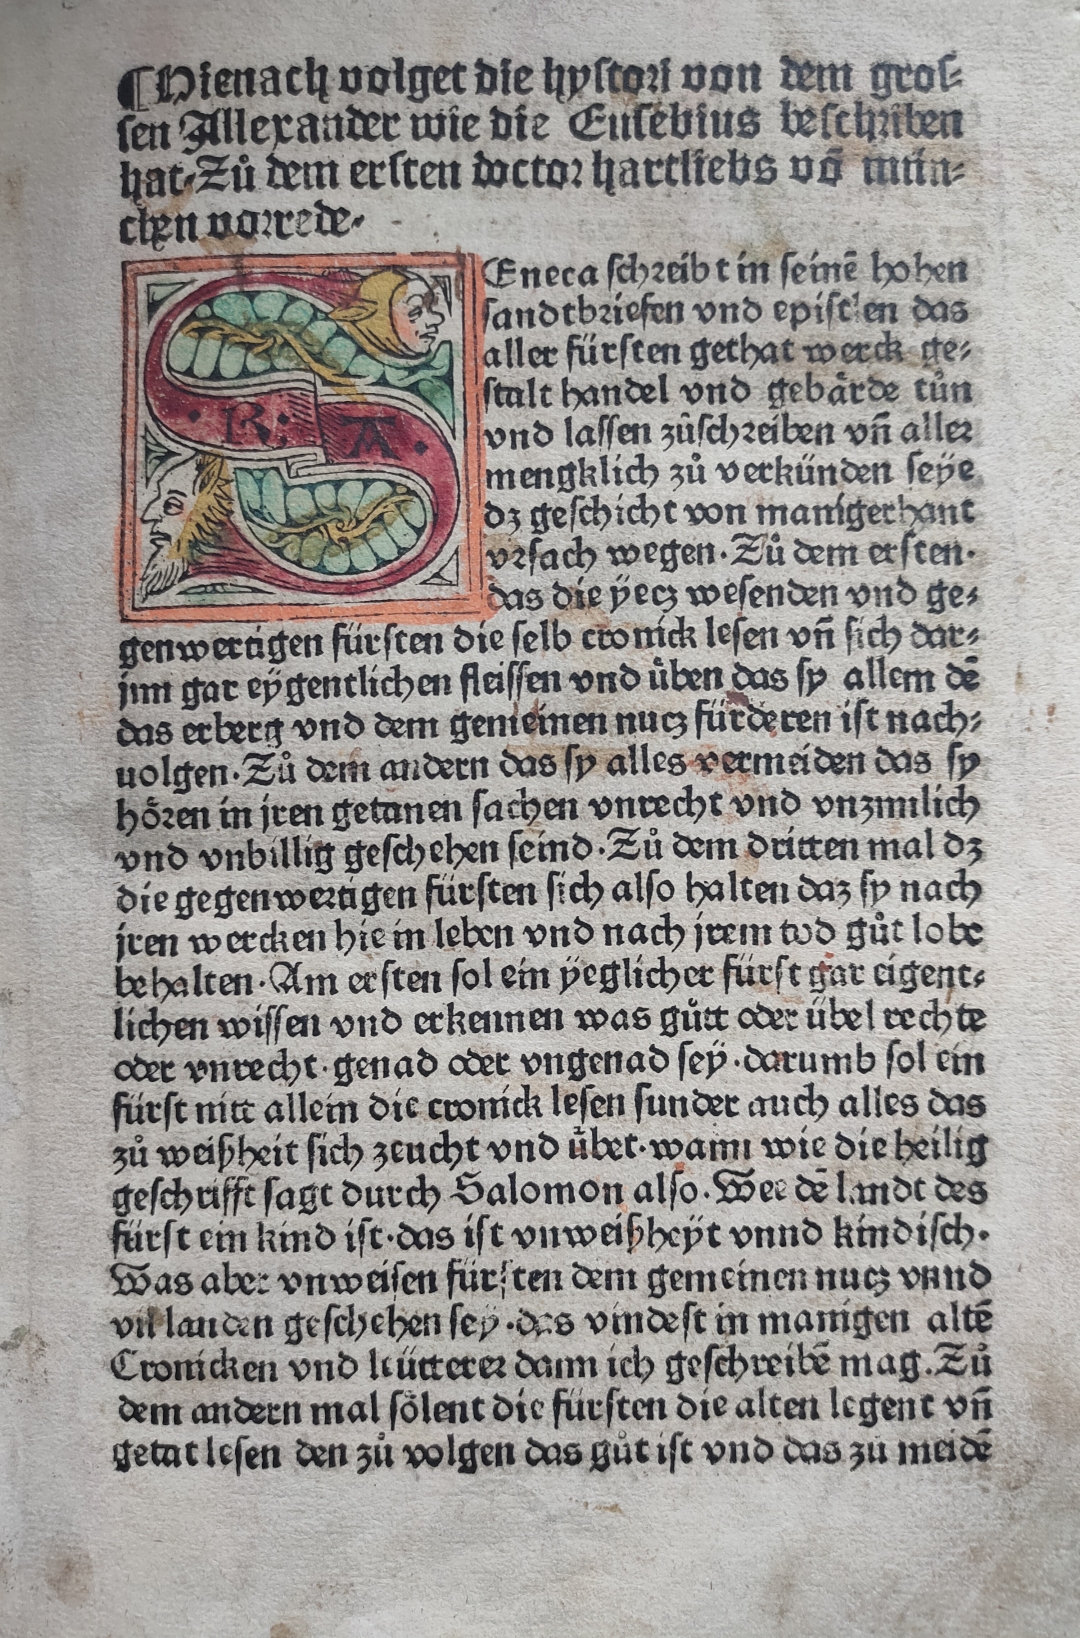 ¶Hienach volget die hystori von dem gros⸗
sen Allexander wie die Eusebius beschriben
hat. Zů dem ersten doctor hartliebs võ mün⸗
chen vorrede.
SEneca schreibt in seinē hohen
sandtbriefen vnd epistlen das
aller fürsten gethat werck ge⸗
stalt handel vnd gebärde tůn
vnd lassen zůschreiben vñ aller
mengklich zů verkünden seÿe
dz geschicht von manigerhant
vrsach wegen. Zů dem ersten.
das die ÿecz wesenden vnd ge⸗
·R: A·
genwertigen fürsten die selb cronick lesen vñ sich dar⸗
jnn gar eÿgentlichen fleissen vnd ůben das sy allem dē
das erberg vnd dem gemeinen nucz fürderen ist nach⸗
uolgen. Zů dem andern das sy alles vermeiden das sy
hören in jren getanen sachen vnrecht vnd vnzimlich
vnd vnbillig geschehen seind. Zů dem dritten mal dz
die gegenwertigen fürsten sich also halten daz sy nach
jren wercken hie in leben vnd nach jrem tod gůt lobe
behalten. Am ersten sol ein ÿeglicher fürst gar eigent⸗
lichen wissen vnd erkennen was gůtt oder übel rechte
oder vnrecht. genad oder vngenad seÿ. darumb sol ein
fürst nitt allein die cronick lesen sunder auch alles das
zů weißheit sich zeucht vnd ůbet. wann wie die heilig
geschrifft sagt durch Salomon also. Wee dē landt des
fürst ein kind ist. das ist vnweißheÿt vnnd kindisch.
Was aber vnweisen fürsten dem gemeinen nucz vnnd
vil landen geschehen seÿ. das vindest in manigen altē
Cronicken vnd lcütterer dann ich geschreibē mag. Zů
dem andern mal sölent die fürsten die alten legent vñ
getat lesen den zů volgen das gůt ist vnd das zů meidē